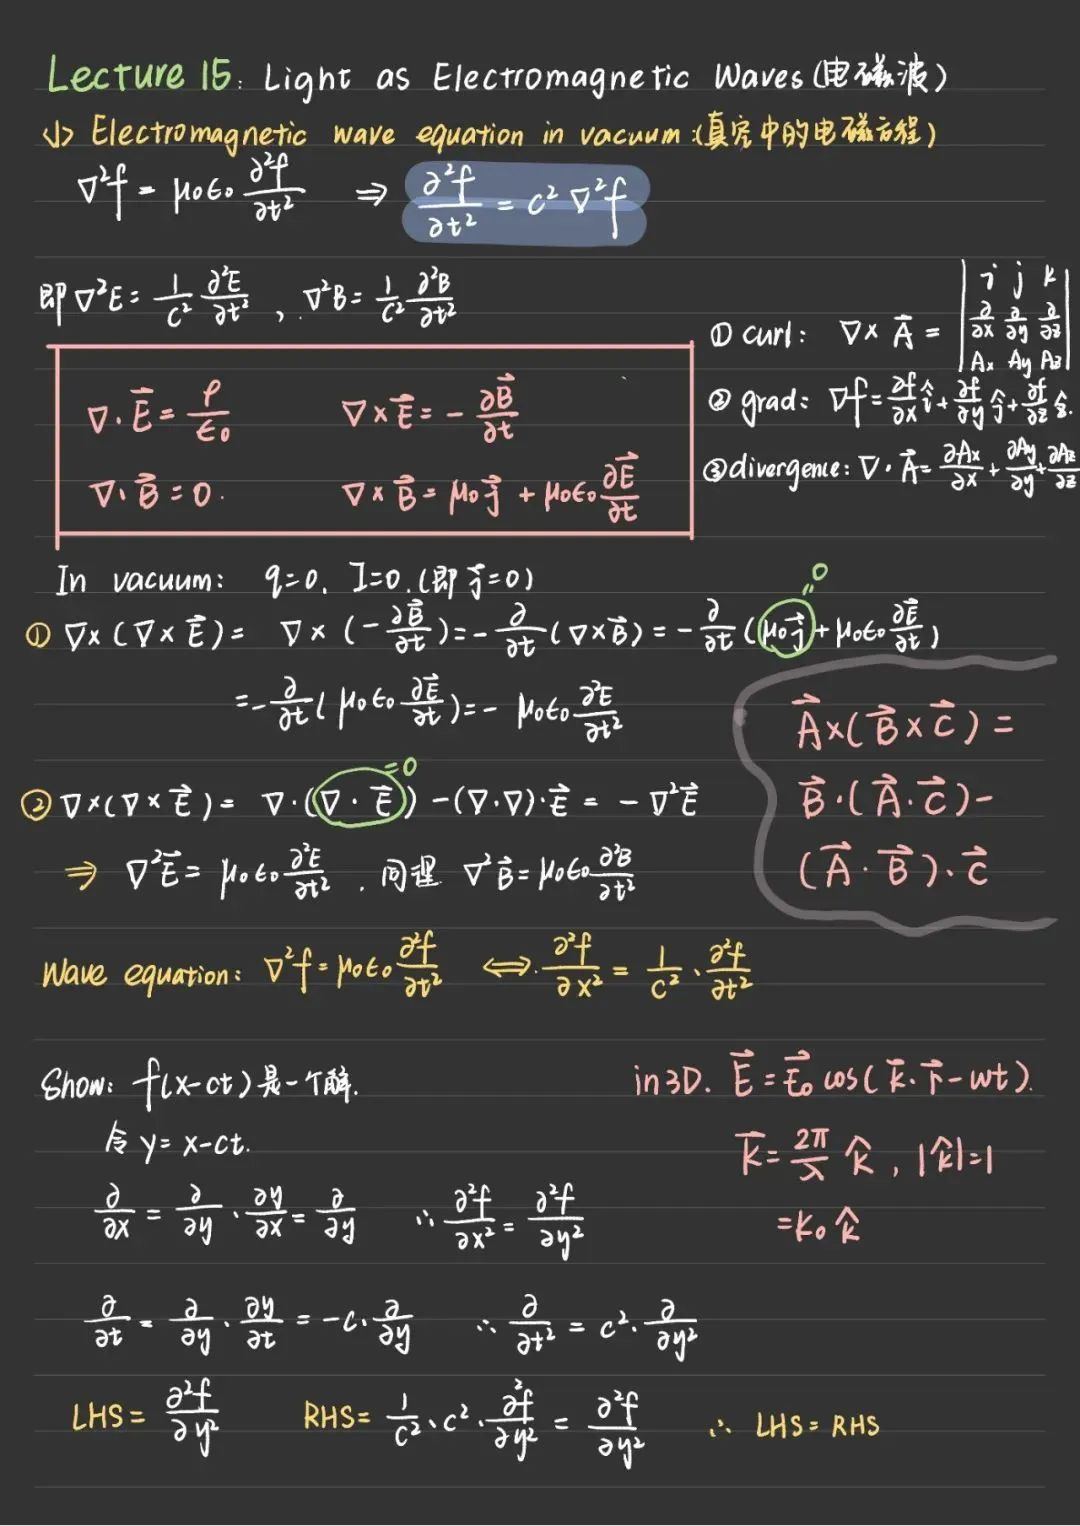 Lecture 15: Light as Electromagnetic Waves (电磁波)
<1> Electromagnetic wave equation in vacuum: (真空中的电磁方程)
∇²f = μ₀ε₀ ∂²f/∂t² ⇒ ∂²f/∂t² = c² ∇²f
即 ∇²E = 1/c² ∂²E/∂t², ∇²B = 1/c² ∂²B/∂t²
① curl: ∇× A⃗ = | i j k ; ∂/∂x ∂/∂y ∂/∂z ; Ax Ay Az |
② grad: ∇f = ∂f/∂x î + ∂f/∂y ĵ + ∂f/∂z ẑ.
③ divergence: ∇· A⃗ = ∂Ax/∂x + ∂Ay/∂y + ∂Az/∂z
∇·E⃗ = ρ/ε₀ ∇×E⃗ = - ∂B⃗/∂t
∇·B⃗ = 0. ∇×B⃗ = μ₀j⃗ + μ₀ε₀ ∂E⃗/∂t
In vacuum: q=0, I=0. (即 j⃗=0)
① ∇×(∇×E⃗) = ∇×(-∂B⃗/∂t) = -∂/∂t (∇×B⃗) = -∂/∂t (μ₀j⃗ + μ₀ε₀ ∂E⃗/∂t)
=0
= -∂/∂t (μ₀ε₀ ∂E⃗/∂t) = - μ₀ε₀ ∂²E/∂t²
② ∇×(∇×E⃗) = ∇·(∇·E⃗) - (∇·∇)·E⃗ = - ∇²E⃗
=0
⇒ ∇²E⃗ = μ₀ε₀ ∂²E/∂t², 同理 ∇²B⃗ = μ₀ε₀ ∂²B/∂t²
A⃗×(B⃗×C⃗) =
B⃗·(A⃗·C⃗) -
(A⃗·B⃗)·C⃗
Wave equation: ∇²f = μ₀ε₀ ∂²f/∂t² ⇔. ∂²f/∂x² = 1/c² · ∂²f/∂t²
Show: f(x-ct) 是一个解.
令 y = x-ct.
∂/∂x = ∂/∂y · ∂y/∂x = ∂/∂y ∴ ∂²f/∂x² = ∂²f/∂y²
in 3D. E⃗ = E⃗₀ cos(k⃗·r⃗ - wt).
k⃗ = 2π/λ k̂, |k̂|=1
= k₀ k̂
∂/∂t = ∂/∂y · ∂y/∂t = -c·∂/∂y ∴ ∂/∂t² = c²·∂/∂y²
LHS = ∂²f/∂y² RHS = 1/c² · c² · ∂²f/∂y² = ∂²f/∂y² ∴ LHS = RHS